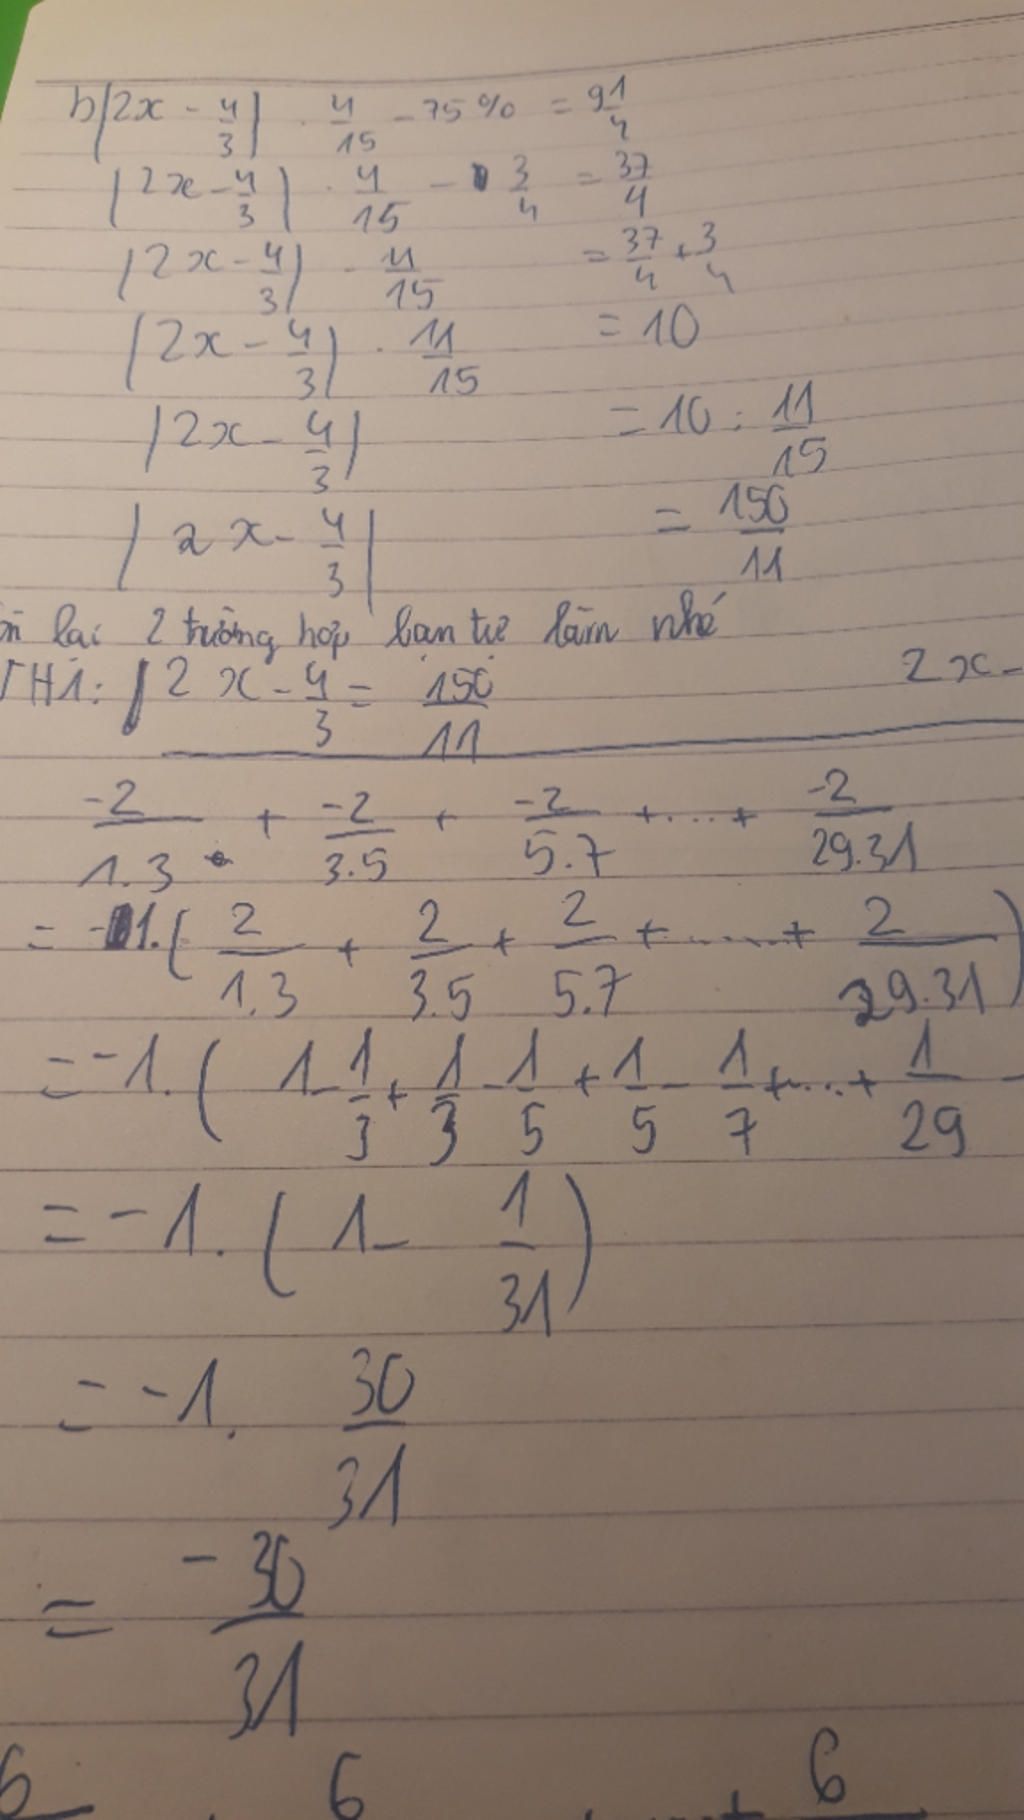 b) |2x - 4/3| . 11/15 - 75% = 9 1/4
|2x - 4/3| . 11/15 - 3/4 = 37/4
|2x - 4/3| . 11/15 = 37/4 + 3/4
|2x - 4/3| . 11/15 = 10
|2x - 4/3| = 10 : 11/15
|2x - 4/3| = 150/11
lại 2 trường hợp bạn tự làm nhé
TH1: 2x - 4/3 = 150/11 2x -
-2/1.3 + -2/3.5 + -2/5.7 + .... + -2/29.31
= -1. ( 2/1.3 + 2/3.5 + 2/5.7 + ...... + 2/29.31 )
= -1. ( 1 - 1/3 + 1/3 - 1/5 + 1/5 - 1/7 + ... + 1/29 -
= -1. ( 1 - 1/31 )
= -1. 30/31
= -30/31
6 6 + 6